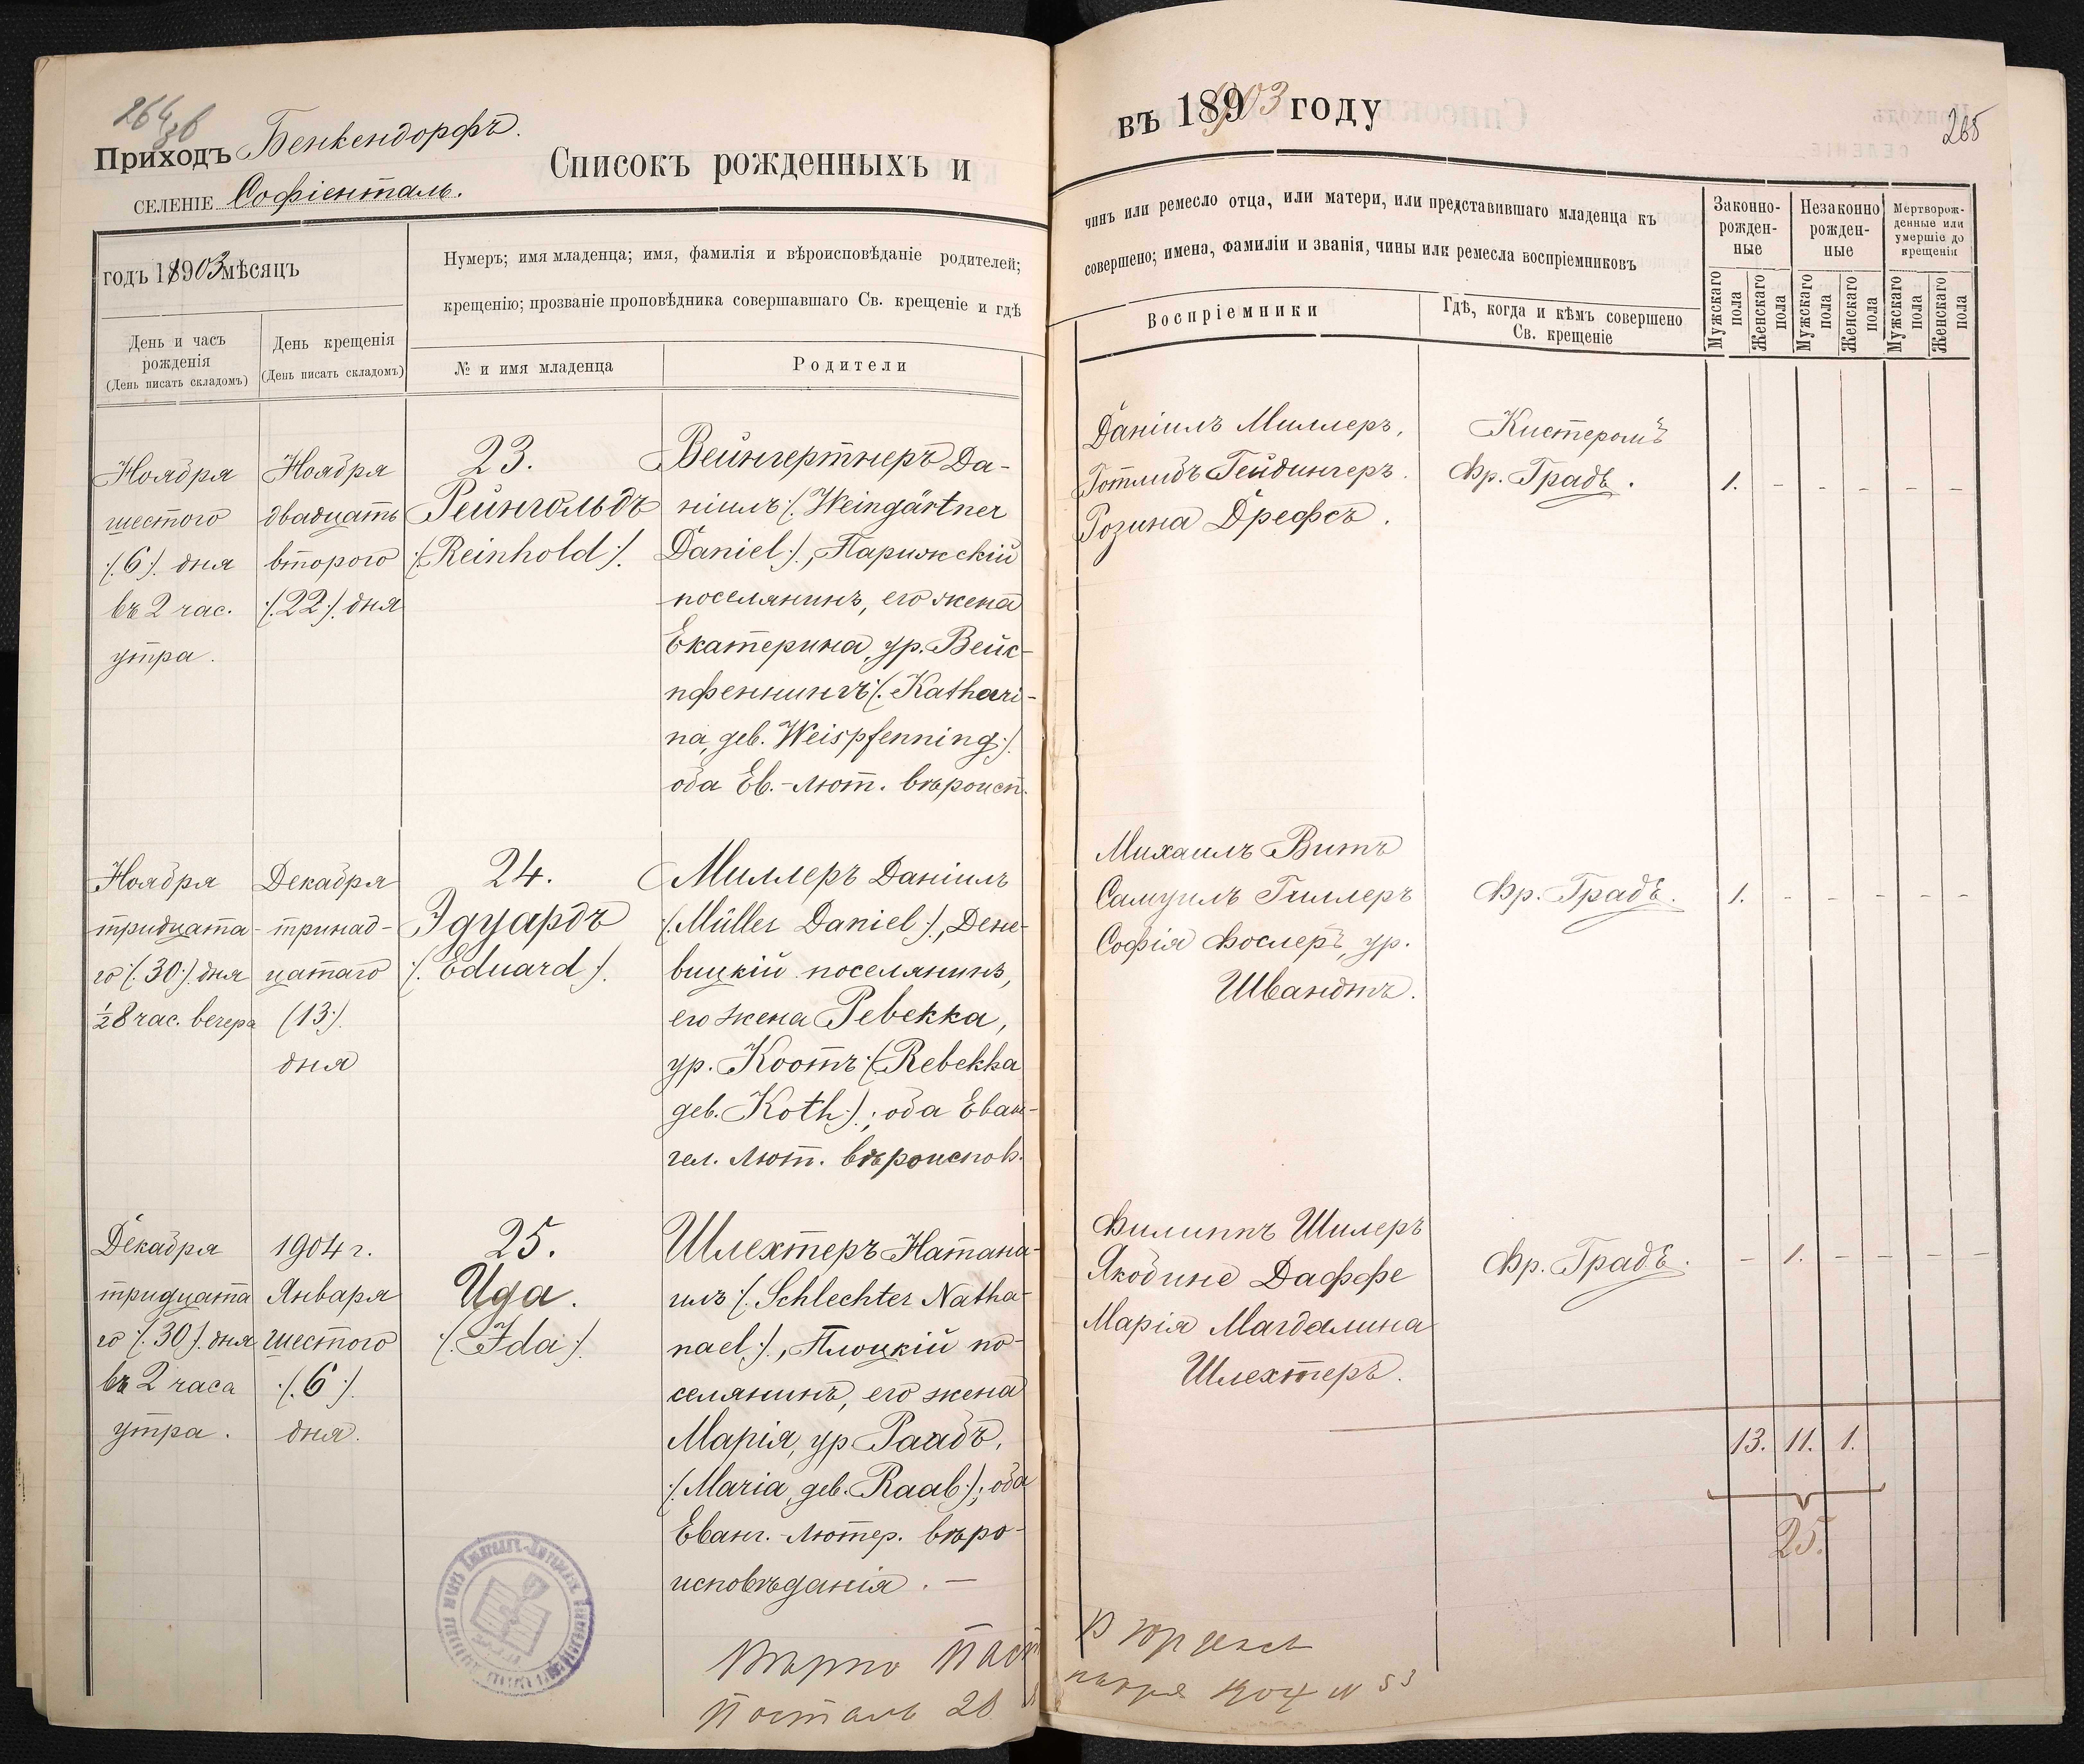 264 зв
Приходъ Бенкендорфъ.
СЕЛЕНІЕ Софіенталь.
Списокъ рожденныхъ и
годъ 1903 мѣсяцъ
Нумеръ; имя младенца; имя, фамилія и вѣроисповѣданіе родителей;
крещенію; прозваніе проповѣдника совершавшаго Св. крещеніе и гдѣ
День и часъ
рожденія
(День писать складомъ)
День крещенія
(День писать складомъ)
№ и имя младенца
Родители
Ноября
шестого
/:6:/ дня
въ 2 час.
утра.
Ноября
двадцать
второго
/:22:/ дня
23.
Рейнгольдъ
/:Reinhold:/.
Вейнгертнеръ Да-
ніилъ /:Weingärtner
Daniel:/, Парижскій
поселянинъ, его жена
Екатерина, ур. Вейс-
пфеннингъ /:Kathari-
na, geb. Weispfenning:/
оба Ев.-Лют. вѣроисп.
Ноября
тридцата-
го /:30:/ дня
½8 час. вечера
Декабря
тринад-
цатаго
(13:/.
дня
24.
Эдуардъ
/:Eduard:/.
Миллеръ Даніилъ
/:Müller Daniel:/, Дене-
вицкій поселянинъ,
его жена Ревекка,
ур. Коотъ /:Rebekka
geb. Koth:/; оба Еван-
гел. Лют. вѣроиспов.
Декабря
тридцата
го /:30:/ дня
въ 2 часа
утра.
1904 г.
Января
шестого
/:6:/.
дня.
25.
Ида.
/:Ida:/.
Шлехтеръ Натана-
илъ /:Schlechter Natha-
nael:/, Плоцкій по-
селянинъ, его жена
Марія, ур Раабъ,
/:Maria, geb. Raab:/; оба
Еванг.-Лютер. вѣро-
исповѣданія. —
Вѣрно Паст
Посталь 28
въ 1903 году
265
чинъ или ремесло отца, или матери, или представившаго младенца къ
совершено; имена, фамиліи и званія, чины или ремесла воспріемниковъ
Воспріемники
Гдѣ, когда и кѣмъ совершено
Св. крещеніе
Законно-
рожден-
ные
Незаконно
рожден-
ные
Мертворож-
денные или
умершіе до
крещенія
Мужскаго
пола
Женскаго
пола
Мужскаго
пола
Женскаго
пола
Мужскаго
пола
Женскаго
пола
Даніилъ Миллеръ,
Готлибъ Гейдингеръ.
Розина Дрефсъ.
Кистеромъ
Фр. Градъ.
1. - - - - -
Михаилъ Витъ
Самуилъ Гиллеръ
Софія Фослеръ, ур.
Швандтъ.
Фр. Градъ.
1. - - - - -
Филиппъ Шилеръ
Якобине Даффе
Марія Магдалина
Шлехтеръ.
Фр. Градъ.
- 1. - - - -
13. 11. 1.
25.
1904 № 53